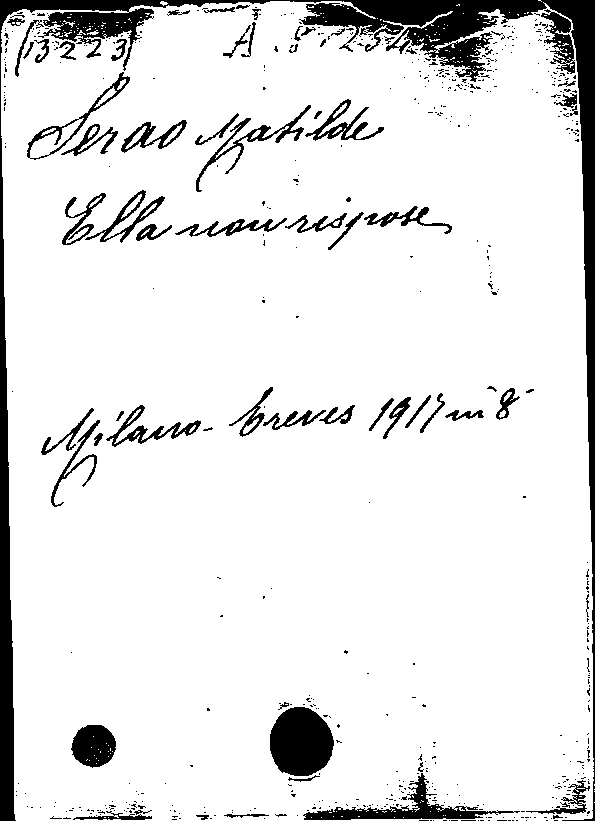 (13223) A. 8. 254
Serao Matilde
Ella non rispose
Milano - Treves 1917 in 8°